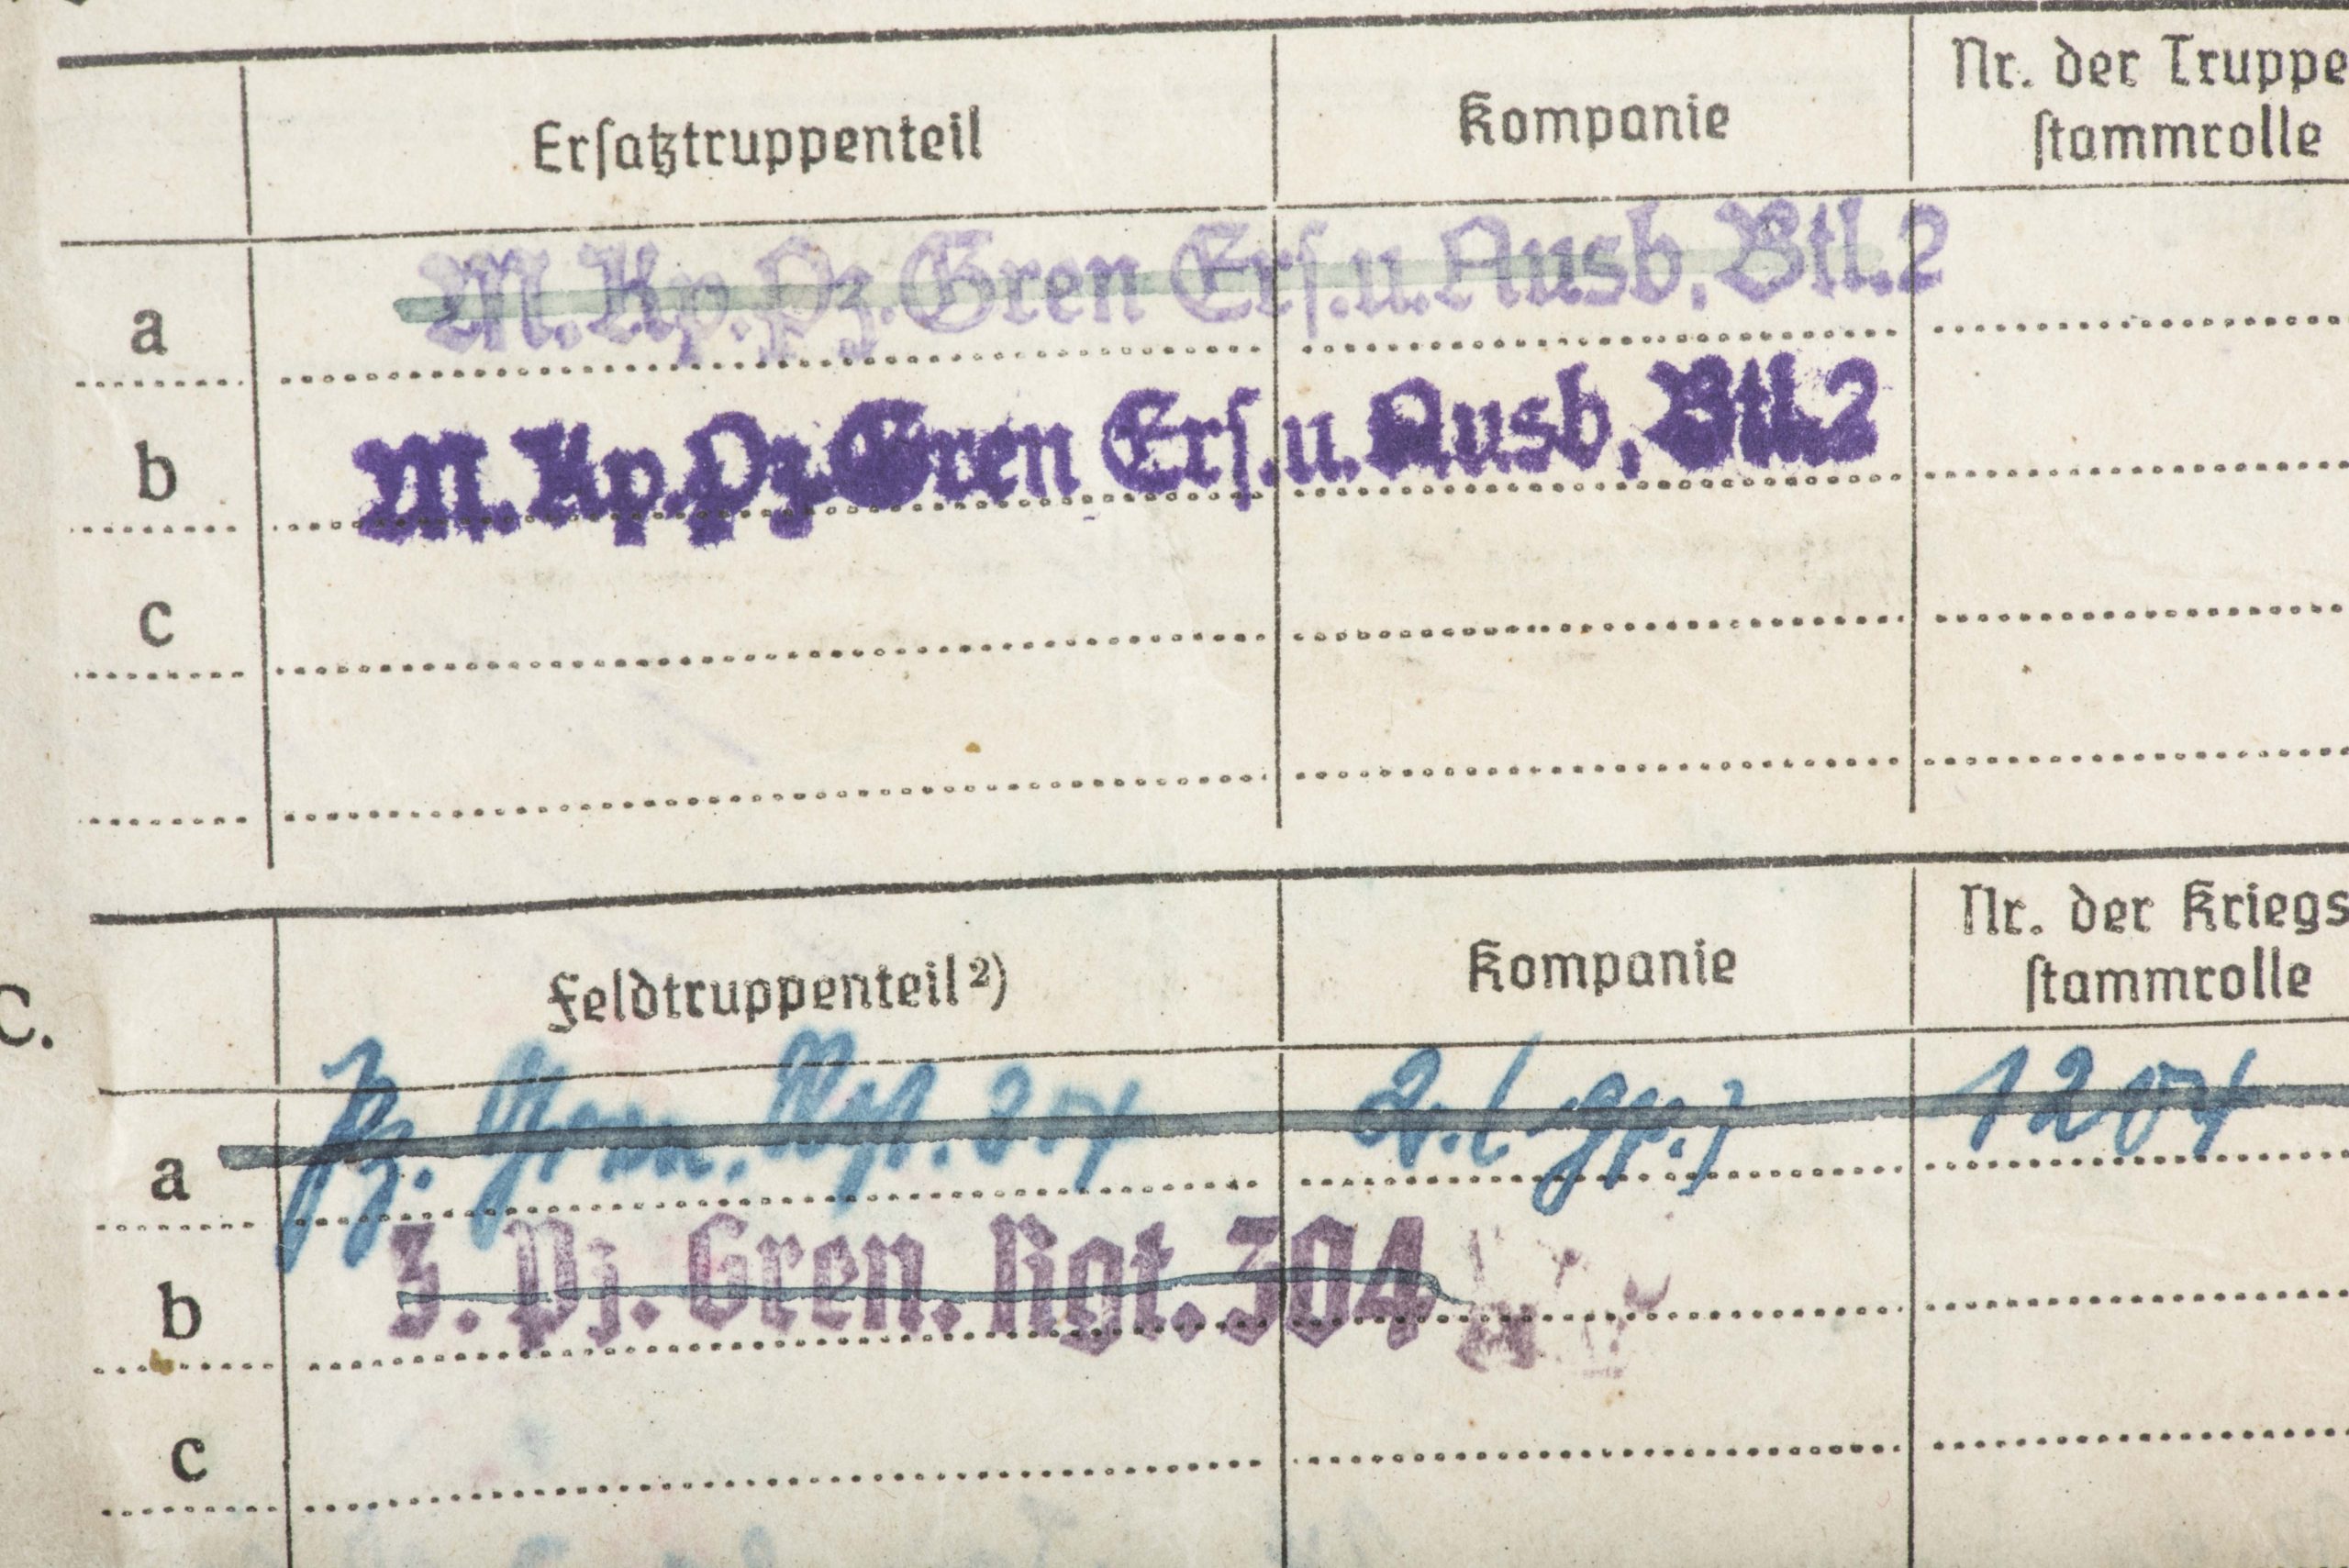 Ersatztruppenteil Kompanie Nr. der Truppe
stammrolle
a M. Kp. Pz. Gren Ers. u. Ausb. Btl. 2
b M. Kp. Pz. Gren Ers. u. Ausb. Btl. 2
c
C.
Feldtruppenteil²) Kompanie Nr. der Kriegs
stammrolle
a Pz. Gren. Rgt. 304 2. (gp.) 1204
b 3. Pz. Gren. Rgt. 304
c